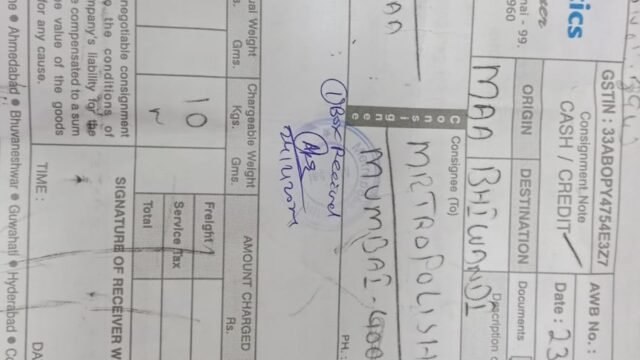 tics
nai - 99.
960
GSTIN : 33ABOPY4754E3Z7
Consignment Note
CASH / CREDIT
AWB No.
Date : 23
ORIGIN
DESTINATION
MAA
BHIWANDI
Documents
Description o
Consignee
Consignee (To)
METROPOLISH
MUMBAI - 400
PH. :
MAA
① Box Received
24/12/2024
ual Weight
Gms.
Chargeable Weight
Kgs.
Gms.
10
AMOUNT CHARGED
Rs.
Freight
Service Tax
Total
negotiable consignment
the conditions of
mpany's liability for the
e compensated to a sum
e value of the goods
for any cause.
SIGNATURE OF RECEIVER W
TIME :
DA
e ● Ahmedabad ● Bhuvaneshwar ● Guwahati ● Hyderabad ● Co